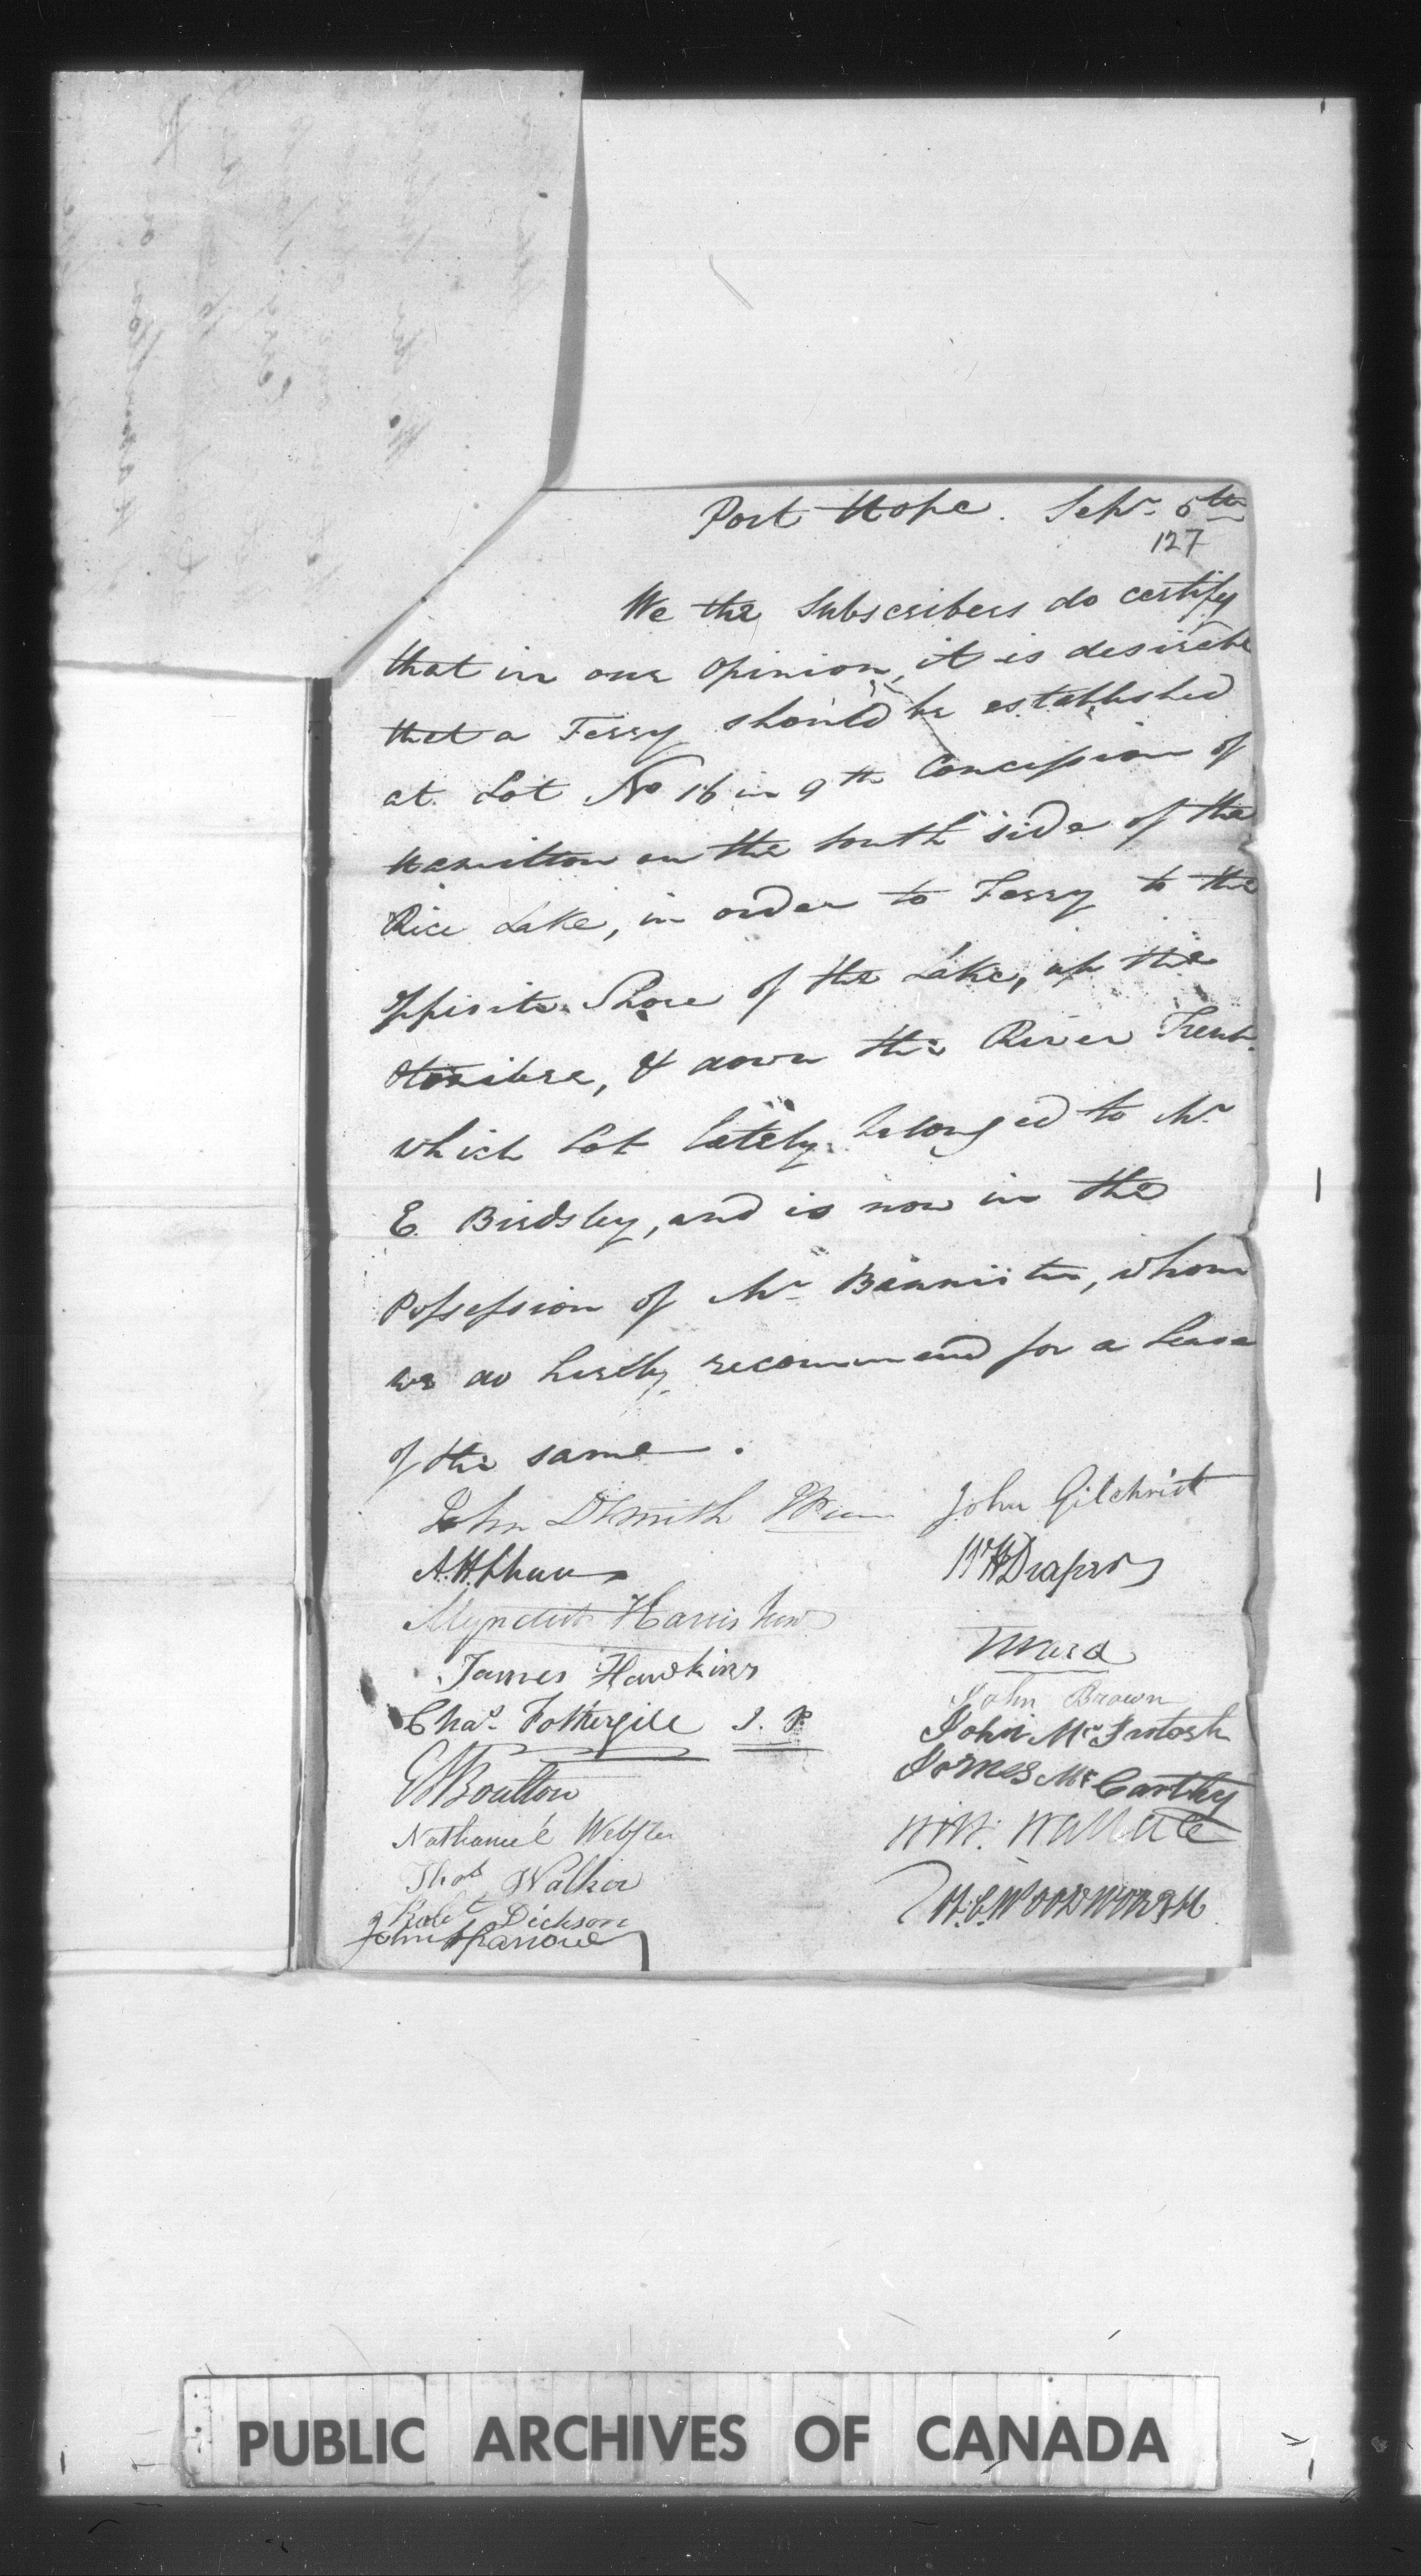 Port Hope. Sepr. 5th
127
We the Subscribers do certify
that in our Opinion, it is desireble
that a Ferry should be established
at Lot No 16 in 9th Concession of
Hamilton on the South side of the
Rice Lake, in order to Ferry to the
oppisite Shore of the Lake, up the
Otonibee, & down the River Trent.
which Lot lately belonged to Mr
E. Birdsley, and is now in the
Possession of Mr Bannister, whom
we do hereby recommend for a Lease
of the same.
John D Smith
John Gilchrist
Wm H Draper
Myndert Harris Junr
James Hawkins
Ward
John Brown
Chas. Fothergill J. P.
John Mc Intosh
James Mc Carthy
Boulton
Nathaniel Webster
Wm. Wallace
Thos Walker
Robt Dickson
Woodworth
John
PUBLIC ARCHIVES OF CANADA